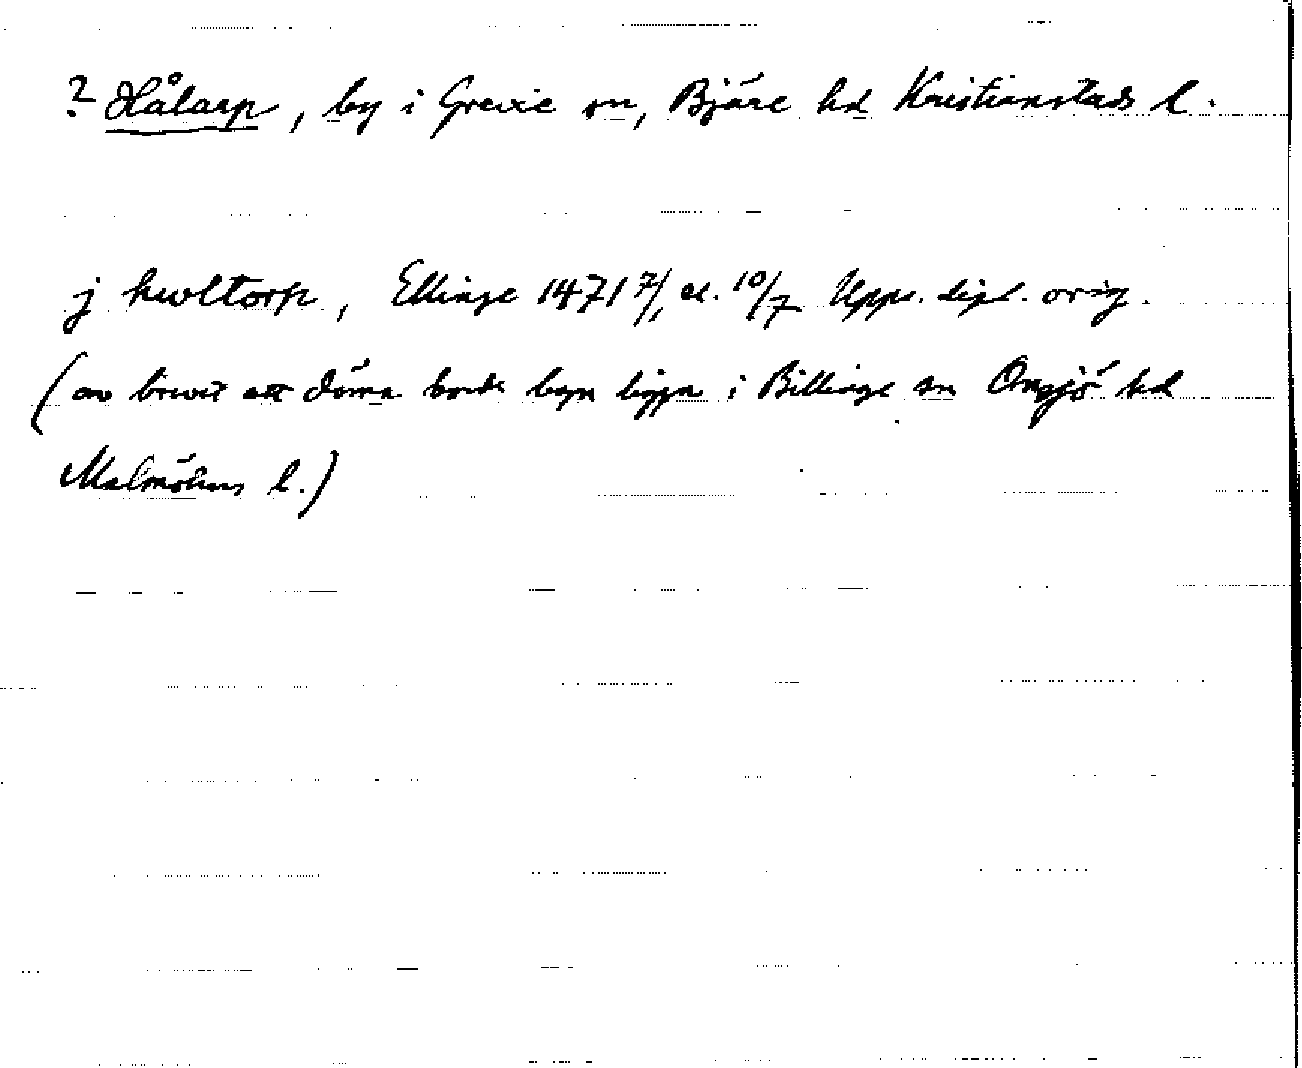 ? Hålarp, by i Grevie sn, Bjäre hd Kristianstads l.
j hwltorp, Ellinge 1471 7/1 el. 10/7 Upps. dipl. orig.
(av brevet att döma borde byn ligga i Billinge sn Onsjö hd
Malmöhus l.)